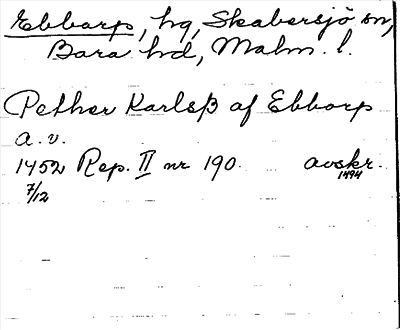 Ebbarp, hg, Skabersjö sn,
Bara hd, Malm. l.
Pether Karlsß af Ebborp
a. v.
1452 Rep. II nr 190. avskr.
7/12 1494